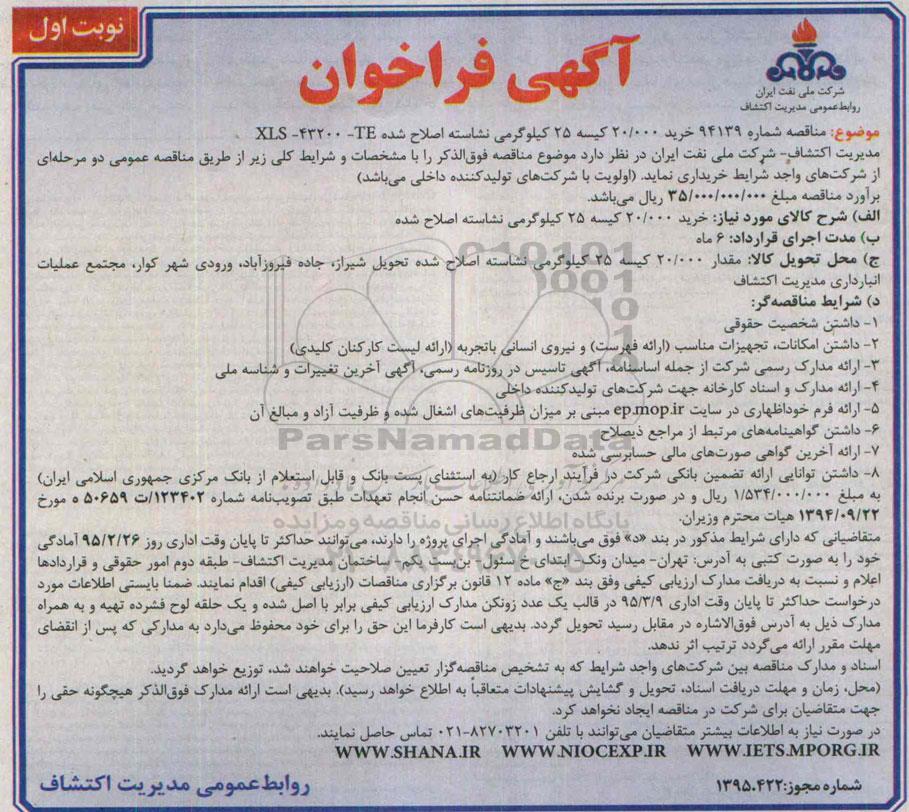 نوبت اول
آگهی فراخوان
شرکت ملی نفت ایران
روابط‌عمومی مدیریت اکتشاف
موضوع: مناقصه شماره ۹۴۱۳۹ خرید ۲۰/۰۰۰ کیسه ۲۵ کیلوگرمی نشاسته اصلاح شده XLS -۴۳۲۰۰ -TE
مدیریت اکتشاف- شرکت ملی نفت ایران در نظر دارد موضوع مناقصه فوق‌الذکر را با مشخصات و شرایط کلی زیر از طریق مناقصه عمومی دو مرحله‌ای
از شرکت‌های واجد شرایط خریداری نماید. (اولویت با شرکت‌های تولیدکننده داخلی می‌باشد)
برآورد مناقصه مبلغ ۳۵/۰۰۰/۰۰۰/۰۰۰ ریال می‌باشد.
الف) شرح کالای مورد نیاز: خرید ۲۰/۰۰۰ کیسه ۲۵ کیلوگرمی نشاسته اصلاح شده
ب) مدت اجرای قرارداد: ۶ ماه
ج) محل تحویل کالا: مقدار ۲۰/۰۰۰ کیسه ۲۵ کیلوگرمی نشاسته اصلاح شده تحویل شیراز، جاده فیروزآباد، ورودی شهر کوار، مجتمع عملیات
انبارداری مدیریت اکتشاف
د) شرایط مناقصه‌گر:
۱- داشتن شخصیت حقوقی
۲- داشتن امکانات، تجهیزات مناسب (ارائه فهرست) و نیروی انسانی باتجربه (ارائه لیست کارکنان کلیدی)
۳- ارائه مدارک رسمی شرکت از جمله اساسنامه، آگهی تاسیس در روزنامه رسمی، آگهی آخرین تغییرات و شناسه ملی
۴- ارائه مدارک و اسناد کارخانه جهت شرکت‌های تولیدکننده داخلی
۵- ارائه فرم خوداظهاری در سایت ep.mop.ir مبنی بر میزان ظرفیت‌های اشغال شده و ظرفیت آزاد و مبالغ آن
۶- داشتن گواهینامه‌های مرتبط از مراجع ذیصلاح
ParsNamadData
۷- ارائه آخرین گواهی صورت‌های مالی حسابرسی شده
۸- داشتن توانایی ارائه تضمین بانکی شرکت در فرآیند ارجاع کار (به استثنای پست بانک و قابل استعلام از بانک مرکزی جمهوری اسلامی ایران)
به مبلغ ۱/۵۳۴/۰۰۰/۰۰۰ ریال و در صورت برنده شدن، ارائه ضمانتنامه حسن انجام تعهدات طبق تصویب‌نامه شماره ۱۲۳۴۰۲/ت ۵۰۶۵۹ ه مورخ
۱۳۹۴/۰۹/۲۲ هیات محترم وزیران.
پایگاه اطلاع رسانی مناقصه و مزایده
متقاضیانی که دارای شرایط مذکور در بند «د» فوق می‌باشند و آمادگی اجرای پروژه را دارند، می‌توانند حداکثر تا پایان وقت اداری روز ۹۵/۲/۲۶ آمادگی
خود را به صورت کتبی به آدرس: تهران- میدان ونک- ابتدای خ سئول- بن‌بست یکم- ساختمان مدیریت اکتشاف- طبقه دوم امور حقوقی و قراردادها
اعلام و نسبت به دریافت مدارک ارزیابی کیفی وفق بند «ج» ماده ۱۲ قانون برگزاری مناقصات (ارزیابی کیفی) اقدام نمایند. ضمنا بایستی اطلاعات مورد
درخواست حداکثر تا پایان وقت اداری ۹۵/۳/۹ در قالب یک عدد زونکن مدارک ارزیابی کیفی برابر با اصل شده و یک حلقه لوح فشرده تهیه و به همراه
مدارک ذیل به آدرس فوق‌الاشاره در مقابل رسید تحویل گردد. بدیهی است کارفرما این حق را برای خود محفوظ می‌دارد به مدارکی که پس از انقضای
مهلت مقرر ارائه می‌گردد ترتیب اثر ندهد.
اسناد و مدارک مناقصه بین شرکت‌های واجد شرایط که به تشخیص مناقصه‌گزار تعیین صلاحیت خواهند شد، توزیع خواهد گردید.
(محل، زمان و مهلت دریافت اسناد، تحویل و گشایش پیشنهادات متعاقباً به اطلاع خواهد رسید). بدیهی است ارائه مدارک فوق‌الذکر هیچگونه حقی را
جهت متقاضیان برای شرکت در مناقصه ایجاد نخواهد کرد.
در صورت نیاز به اطلاعات بیشتر متقاضیان می‌توانند با تلفن ۸۲۷۰۳۲۰۱-۰۲۱ تماس حاصل نمایند.
WWW.SHANA.IR WWW.NIOCEXP.IR WWW.IETS.MPORG.IR
شماره مجوز:۱۳۹۵.۴۲۲
روابط‌عمومی مدیریت اکتشاف